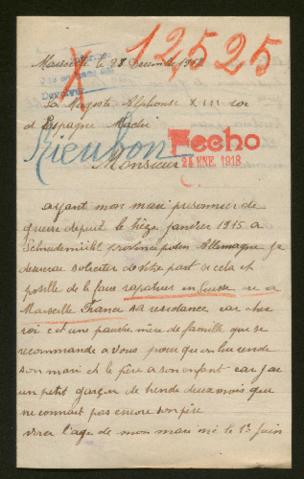 12,525
Marseille le 28 Decembre 1917
Sa Majesté Alphonse XIII roi
d'Espagne Madri
Rieubon
Fecho
24 ENE. 1918
Monsieur
ayant mon mari prisonnier de
guerre depuit le treize janvier 1915 a
Schneidemühl Allemagne je
desirerai soliciter de votre part si cela et
posible de le faire rapatrier en Suisse ou a
Marseille France sa residance car cher
roi c et une pauvre mère de famille que se
recommande a Vous pour qu'on lui rende
son mari et le père a son enfant car j'ai
un petit garçon de trende deux mois que
ne connait pas encore son père
voici l'age de mon mari né le 1er Juin